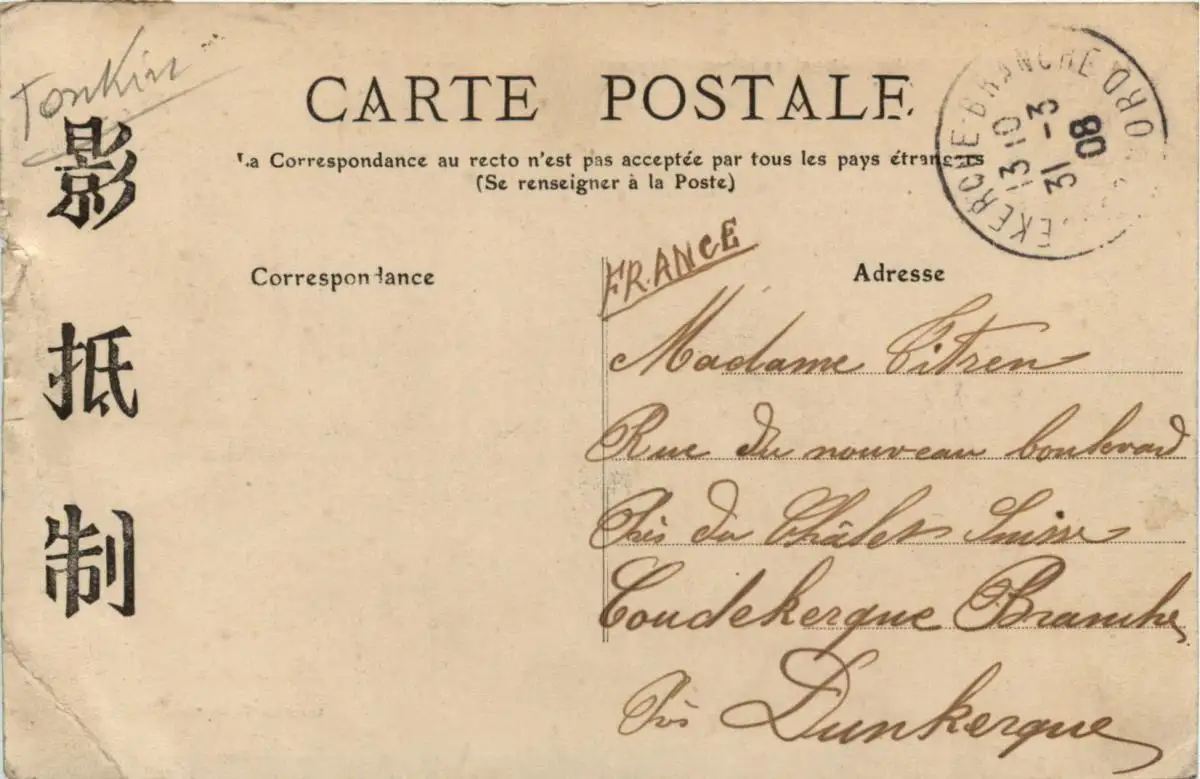 Tonkin
影
抵
制
CARTE POSTALE
La Correspondance au recto n'est pas acceptée par tous les pays étrangers
(Se renseigner à la Poste)
EKERQUE-BRANCHE
ORD
13 10
31 -3
08
Correspondance
FRANCE
Adresse
Madame Titren
Rue du nouveau boulevard
Près du Châlet Suisse
Coudekerque Branche
Près Dunkerque